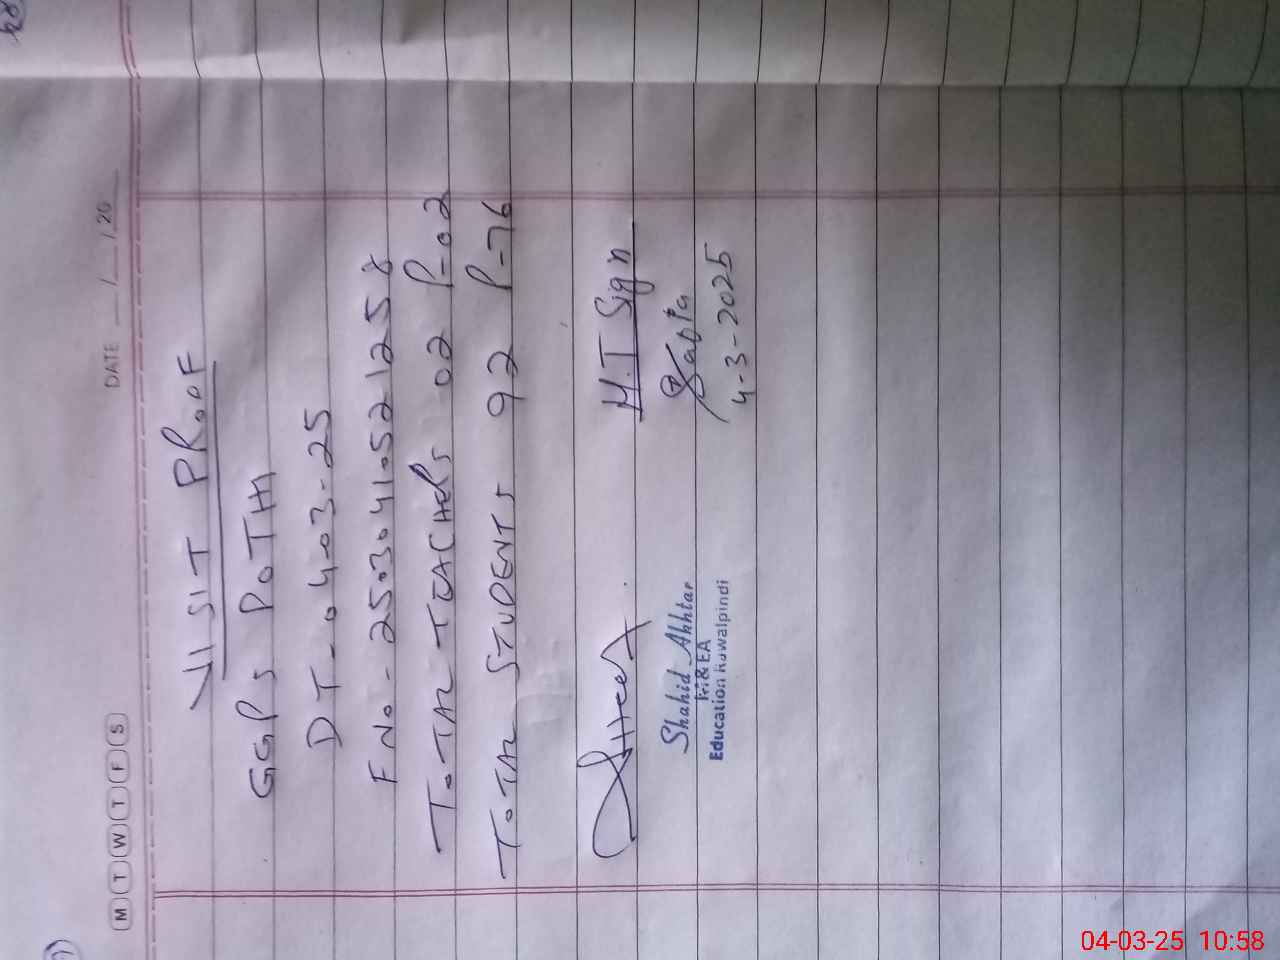 M T W T F S
DATE __/__/20__
VISIT PROOF
GGPS POTHI
DT-04-03-25
FNO-25030410521258
TOTAL TEACHERS 02 P-02
TOTAL STUDENTS 92 P-76
H.T Sign
Sabia
4-3-2025
Shahid Akhtar
M&EA
Education Rawalpindi
04-03-25 10:58